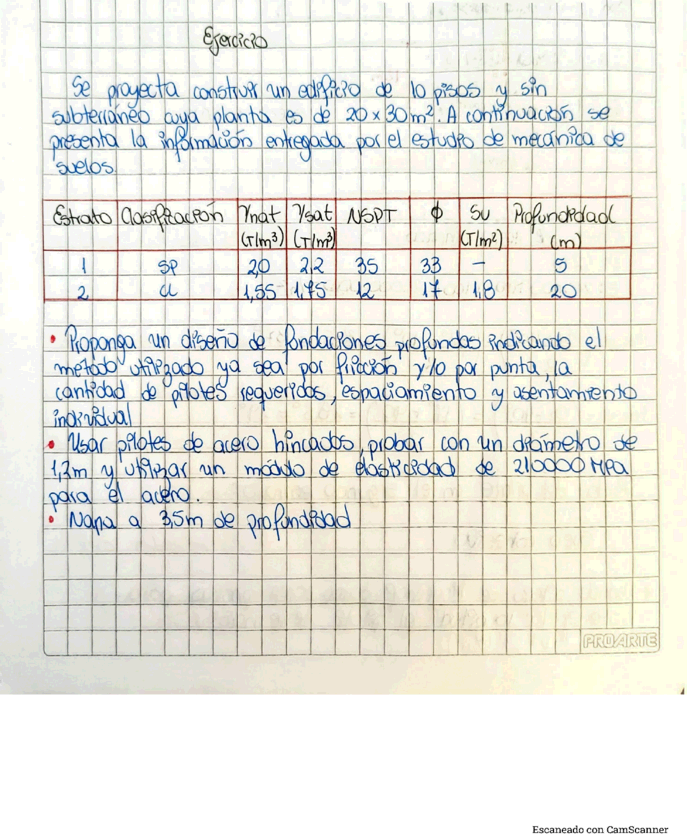 Ejercicio
Se proyecta construir un edificio de 10 pisos y sin
subterráneo cuya planta es de 20 x 30 m². A continuación se
presenta la información entregada por el estudio de mecánica de
suelos
Estrato Clasificación γnat (T/m³) γsat (T/m³) NSPT ϕ Su (T/m²) Profundidad (m)
1 SP 2,0 2,2 35 33 - 5
2 CL 1,55 1,75 12 17 1,8 20
• Proponga un diseño de fundaciones profundas indicando el
método utilizado ya sea por fricción y/o por punta, la
cantidad de pilotes requeridos, espaciamiento y asentamiento
individual
• Usar pilotes de acero hincados, probar con un diámetro de
1,2m y utilizar un módulo de elasticidad de 210000 MPa
para el acero.
• Napa a 3,5m de profundidad
PROARTE
Escaneado con CamScanner